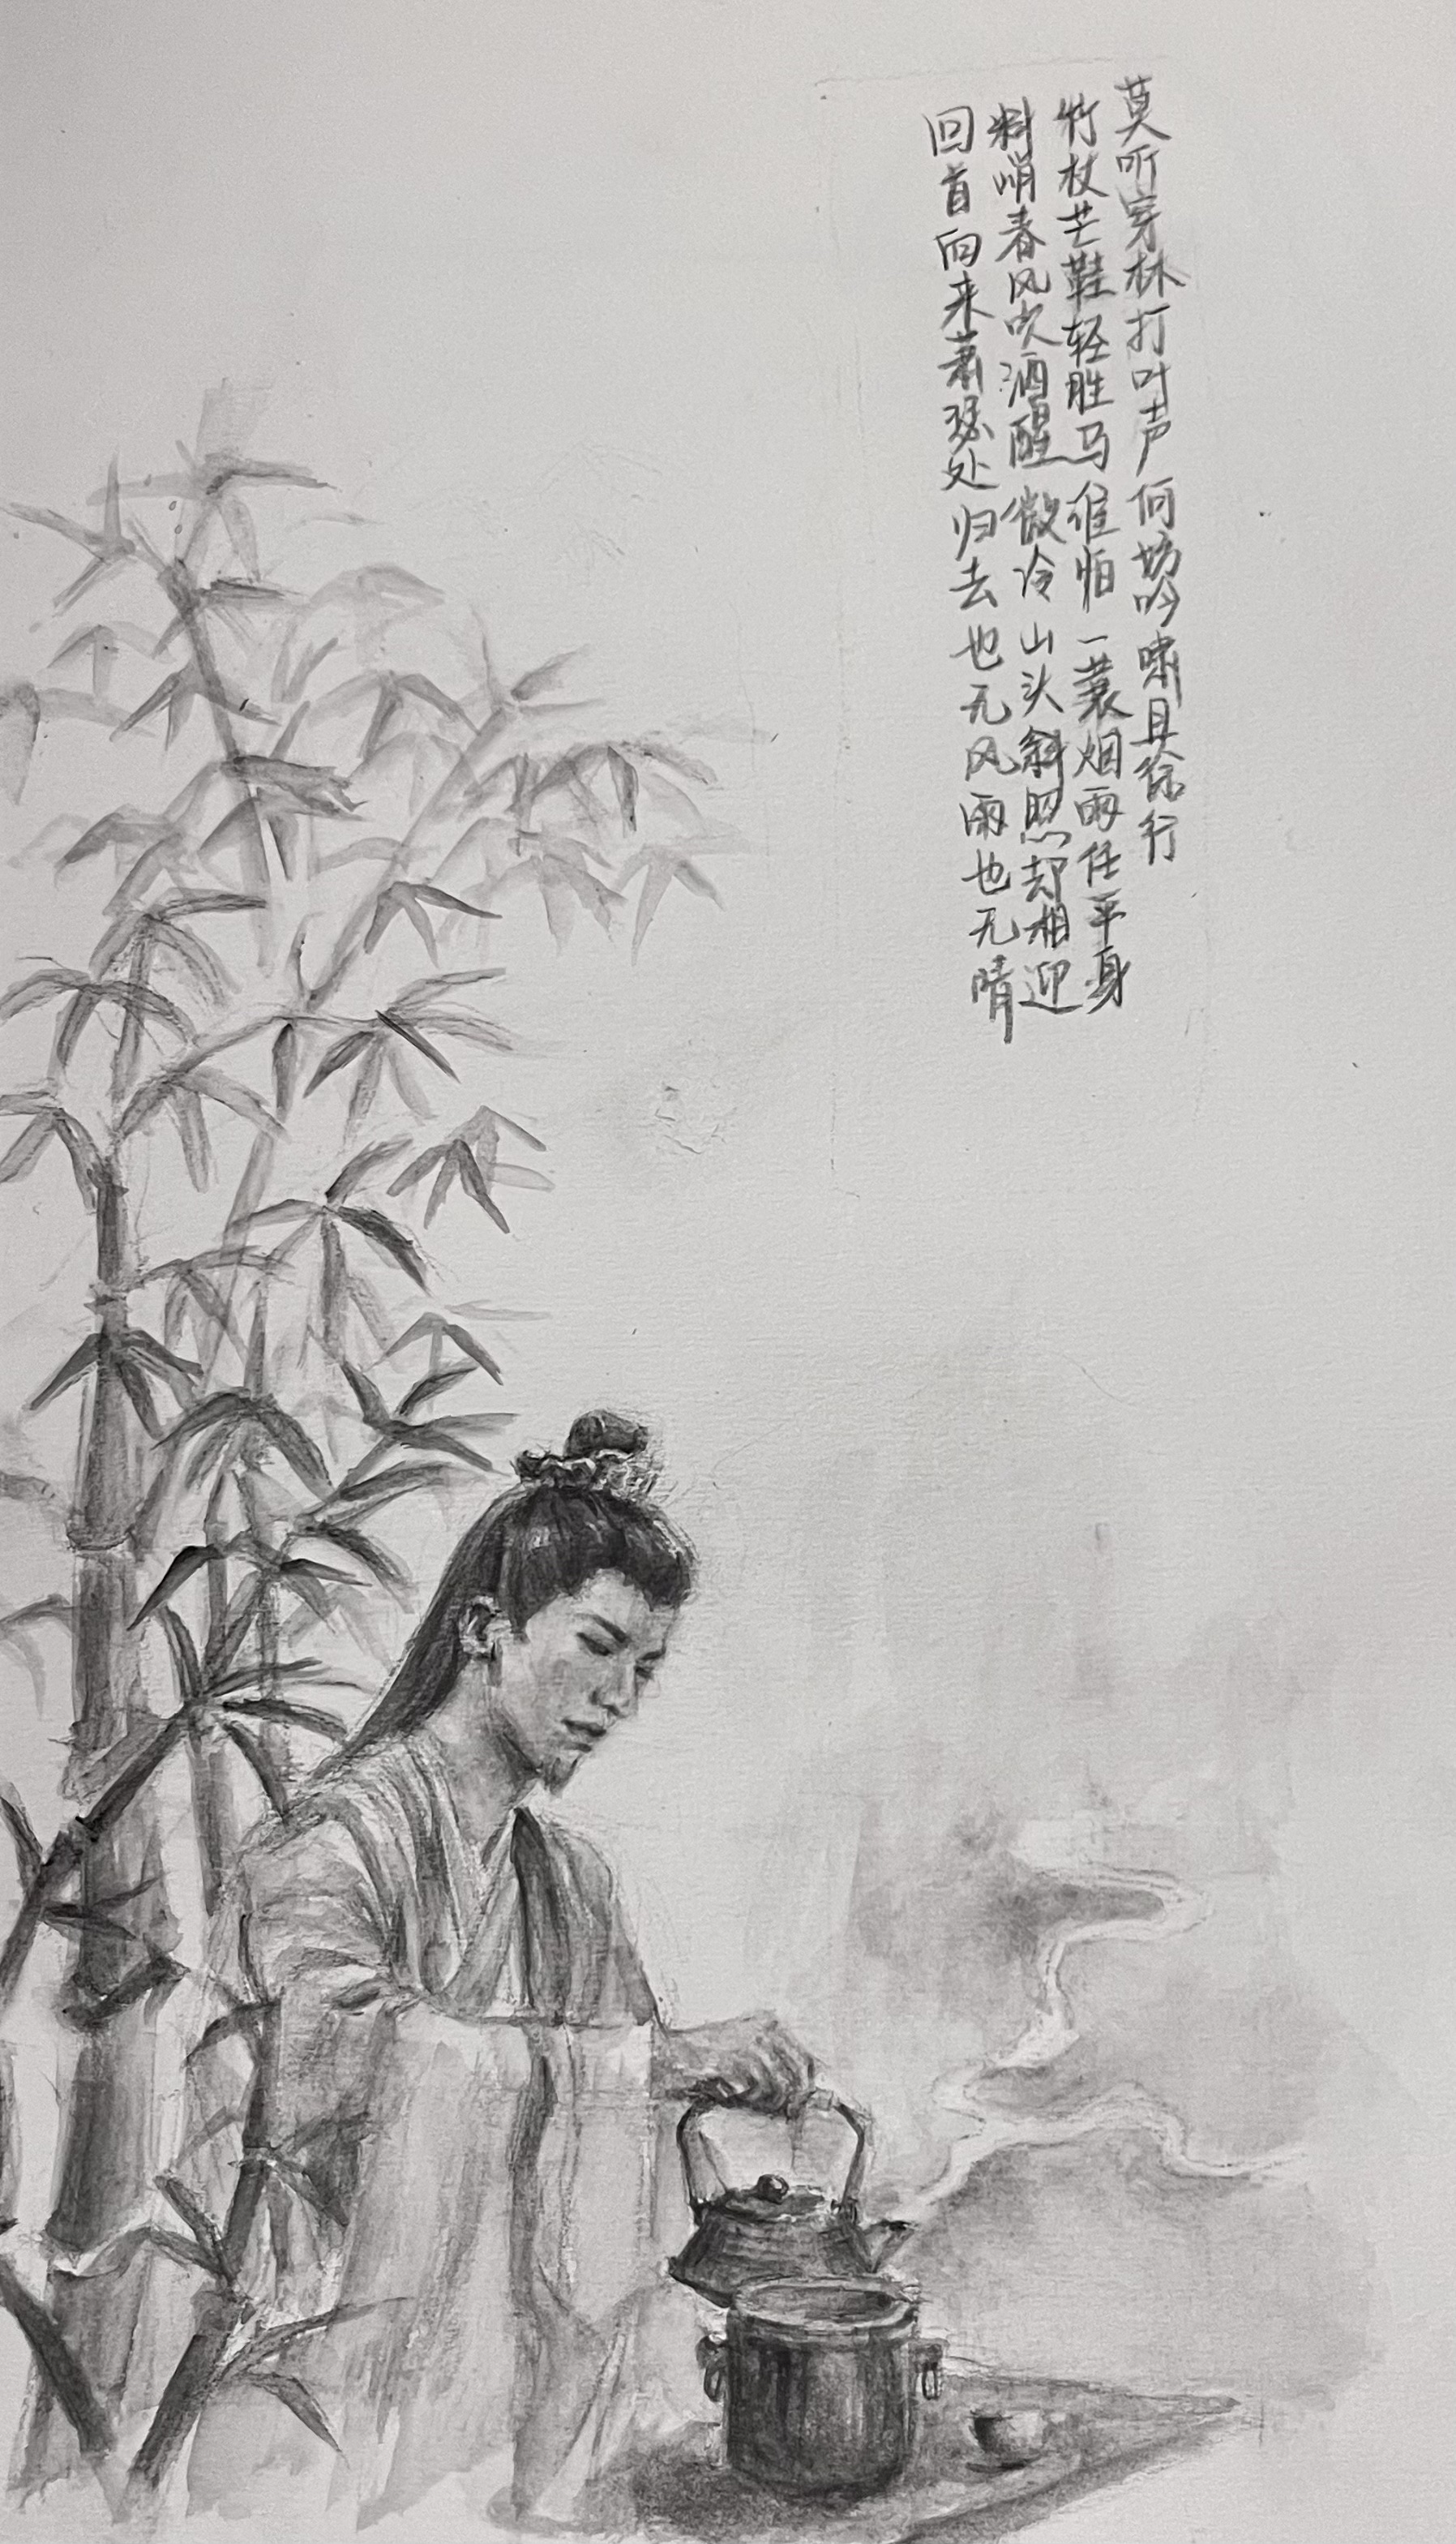 莫听穿林打叶声何妨吟啸且徐行
竹杖芒鞋轻胜马谁怕一蓑烟雨任平身
料哨春风吹酒醒微冷山头斜照却相迎
回首向来萧瑟处归去也无风雨也无晴